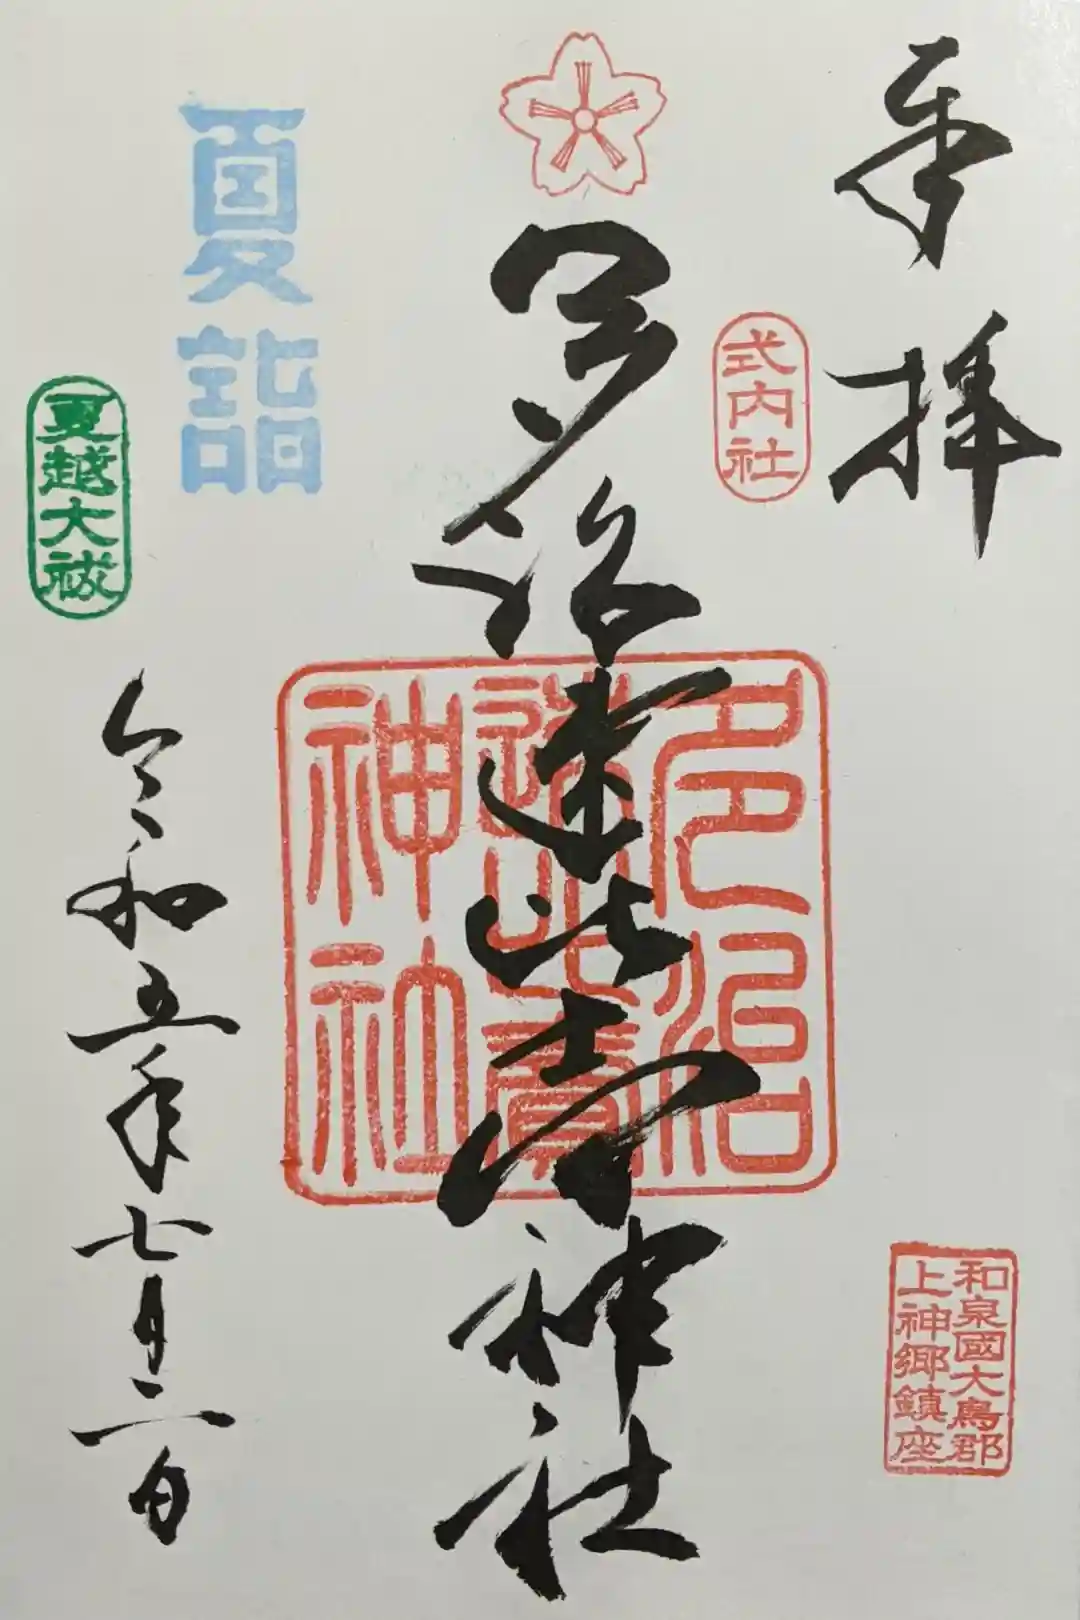 奉拝
式内社
和泉國大鳥郡
上神郷鎮座
多治速比売神社
多治
速比賣
神社
夏詣
夏越大祓
令和五年七月二日